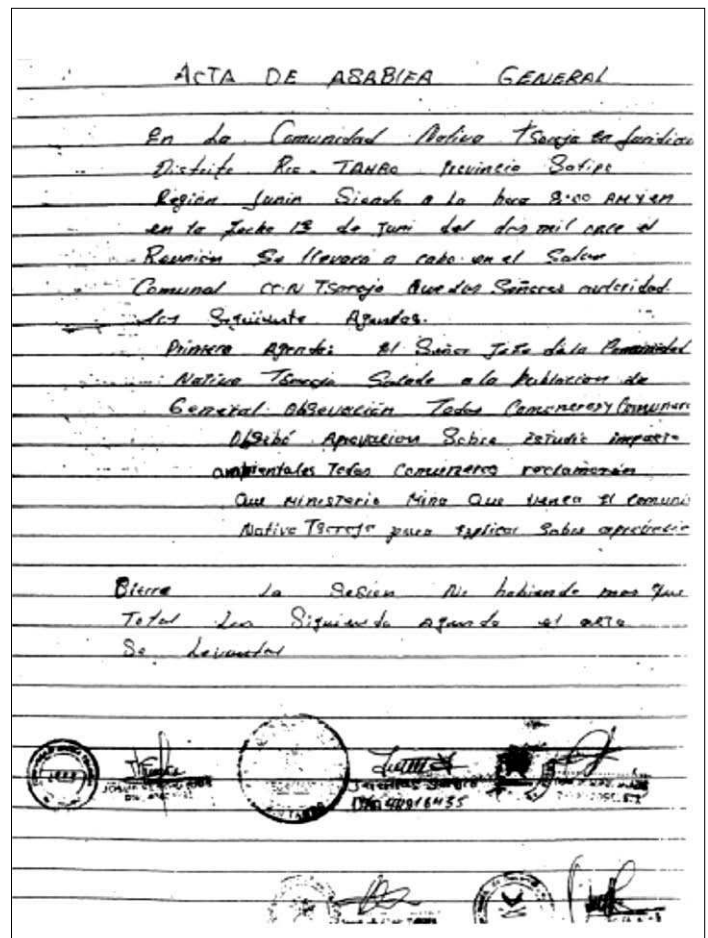 ACTA DE ASABLEA GENERAL
En La Comunidad Nativa Tsoroja en Juridicc
Distrito Rio - TAMBO Provincia Satipo
Región Junin Siendo a la hora 8:00 AM y en
en la fecha 13 de Juni del dos mil once el
Reunión Se llevara a cabo en el Salon
Comunal CC.N Tsoroja que los Señores autoridad
los Siguiente Agendas.
Primero Agenda: El Señor Jefe de la Comunidad
Nativa Tsoroja Salude a la Poblacion de
General Obsevación Todos Comuneros y Comuner
Aprovacion Sobre Estudio impacto
ambientales Todos Comuneros reclamaron
Que Ministerio Mina Que venea El Comuni
Nativa Tsoroja para Explicar Sobre
Bierre la Sesion No habiendo mas que
Total Los Siguiendo Agenda el acta
Se Levantar